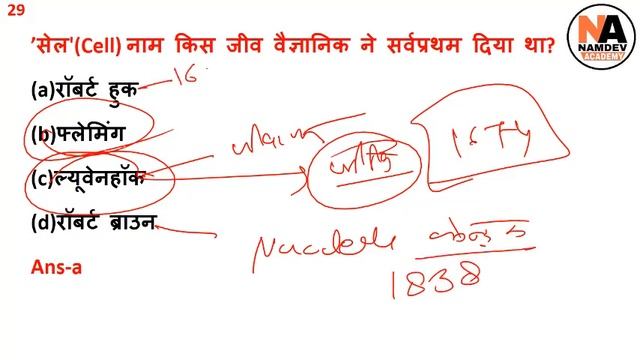 29
NA
NAMDEV
ACADEMY
'सेल'(Cell) नाम किस जीव वैज्ञानिक ने सर्वप्रथम दिया था?
(a)रॉबर्ट हुक 16
(b)फ्लेमिंग
(c)ल्यूवेनहॉक 1674
(d)रॉबर्ट ब्राउन
1838
Ans-a